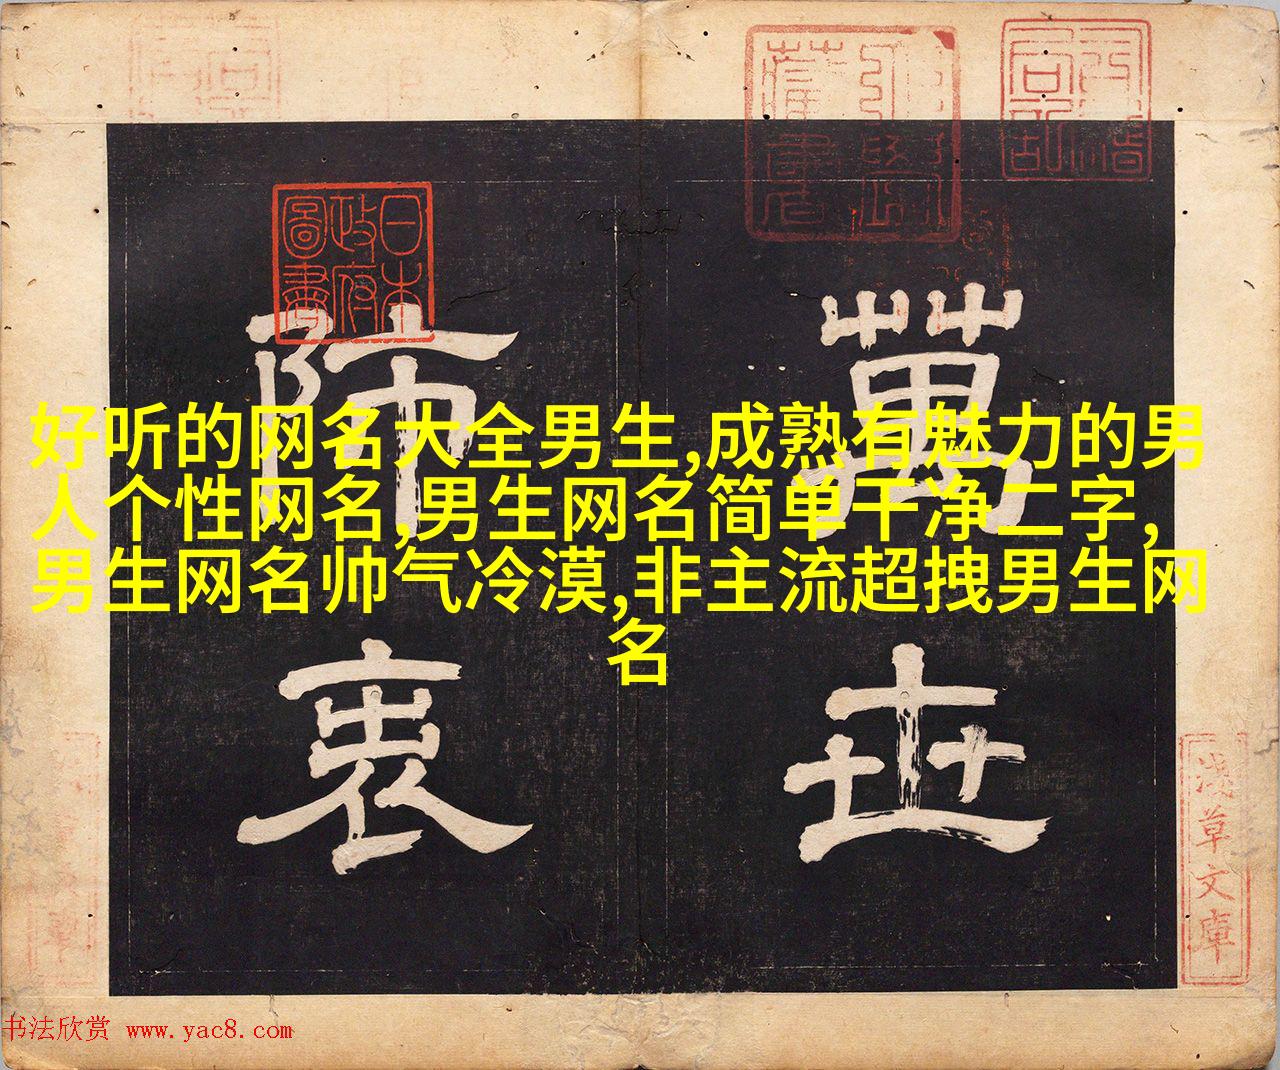 好听的网名大全男生,成熟有魅力的男
人个性网名,男生网名简单干净二字,
男生网名帅气冷漠,非主流超拽男生网
名
萬世
師衷
日本
政府
圖書
淺草文庫
书法欣赏 www.yac8.com